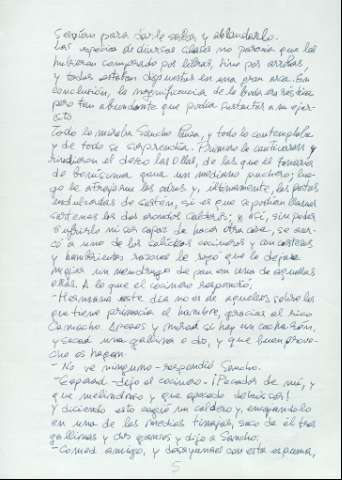 servían para darle sabor y ablandarlo.
Las especias de diversas clases no parecía que las
hubieran comprado por libras, sino por arrobas,
y todas estaban dispuestas en una gran arca. En
conclusión, la magnificencia de la boda era rústica
pero tan abundante que podía sustentar a un ejér-
cito.
Todo lo miraba Sancho Panza, y todo lo contemplaba
y de todo se sorprendía. Primero le cautivaron y
rindieron el deseo las ollas, de las que él tomaría
de buenísima gana un mediano puchero; lue-
go le atraparon los odres y, últimamente, las frutas
endulzadas de sartén, si es que se podían llamar
sartenes los dos orondos calderos; y así, sin poder
sufrirlo ni ser capaz de hacer otra cosa, se acer-
có a uno de los solícitos cocineros y con corteses
y hambrientas razones le rogó que le dejase
mojar un mendrugo de pan en una de aquellas
ollas. A lo que el cocinero respondió,
- Hermano este día no es de aquellos sobre los
que tiene primacía el hambre, gracias al rico
Camacho. Apeaos y mirad si hay un cucharón,
y sacad una gallina o dos, y que buen prove-
cho os hagan.
- No veo ninguno - respondió Sancho.
- Esperad - dijo el cocinero - ¡Pecador de mí, y
que melindroso y que apocado debéis ser!
Y diciendo esto cogió un caldero, encajándolo
en una de las medias tinajas, sacó de él tres
gallinas y dos gansos y dijo a Sancho:
- Comed amigo, y desayunaos con esta espuma,
5